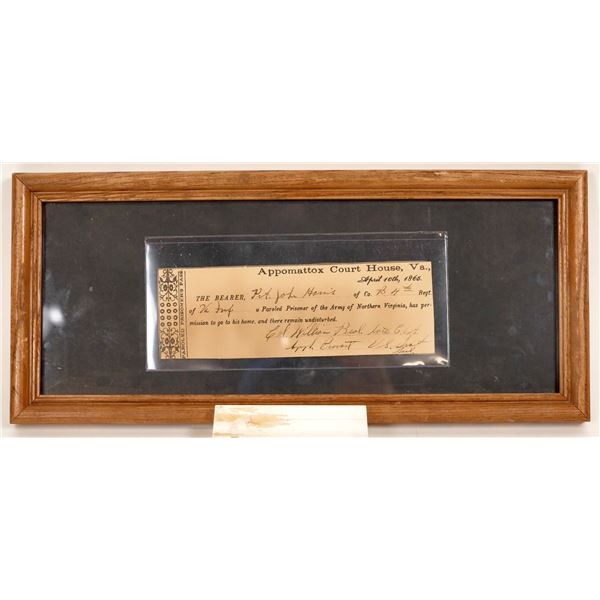 Appomattox Court House, Va.,
April 10th, 1865.
THE BEARER, Pvt. John Harris of Co. B 4th Regt.
of Va Inf a Paroled Prisoner of the Army of Northern Virginia, has per-
mission to go to his home, and there remain undisturbed.
Col William
PAROLED PRISONER'S PASS